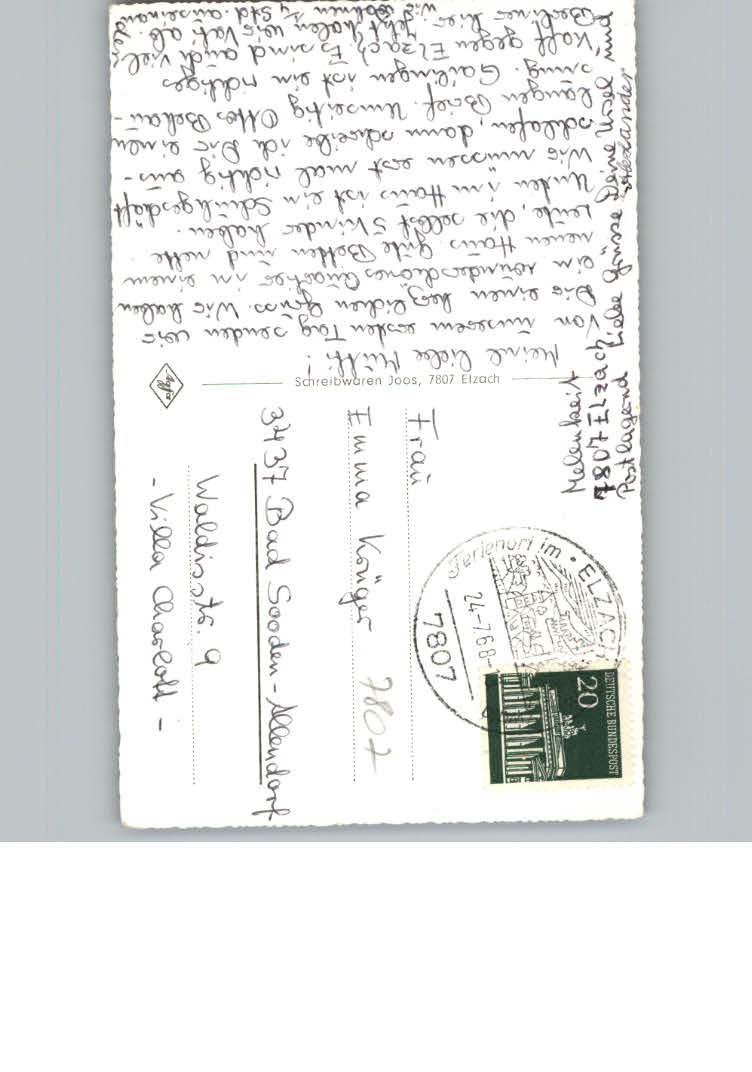 Meine liebe Mutti!
Von unserem ersten Tag senden wir
Dir einen herzlichen Gruss. Wir haben
ein wunderschönes Quartier in einem
neuen Haus. Gute Betten und nette
Leute, die selbst 5 Kinder haben.
Unten im Haus ist ein Schuhgeschäft
Wir müssen erst mal richtig aus-
schlafen, dann schreibe ich Dir einen
langen Brief. Umseitig Ottos Behau-
sung. Gailingen ist ein richtiges
Kaff gegen Elzach. Es sind auch viele
Berliner hier. Jetzt holen wir Vati ab.
wir wohnen ½ Std auseinander
Liebe Grüsse Deine Ursel und
Alexander
Schreibwaren Joos, 7807 Elzach
Agfa
7807 Elzach
Postlagernd
Frau
Emma Krüger
7807
3437 Bad Sooden-Allendorf
Waldisstr. 9
- Villa Charlott -
Ferienort im
ELZACH
24-7.68
7807
20
DEUTSCHE BUNDESPOST